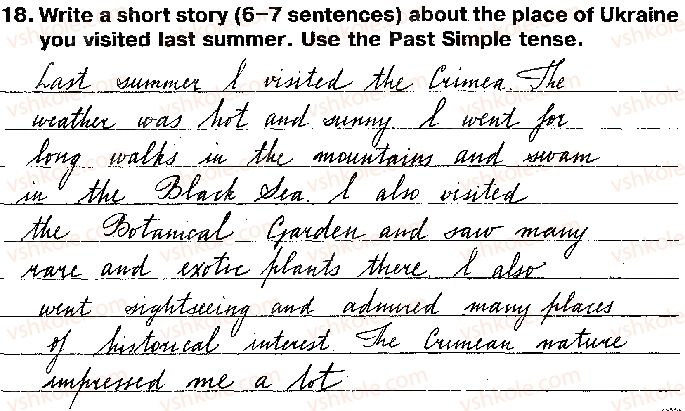 18. Write a short story (6–7 sentences) about the place of Ukraine
you visited last summer. Use the Past Simple tense.
Last summer I visited the Crimea. The
weather was hot and sunny I went for
long walks in the mountains and swam
in the Black Sea. I also visited
the Botanical Garden and saw many
rare and exotic plants there I also
went sightseeing and admired many places
of historical interest The Crimean nature
impressed me a lot